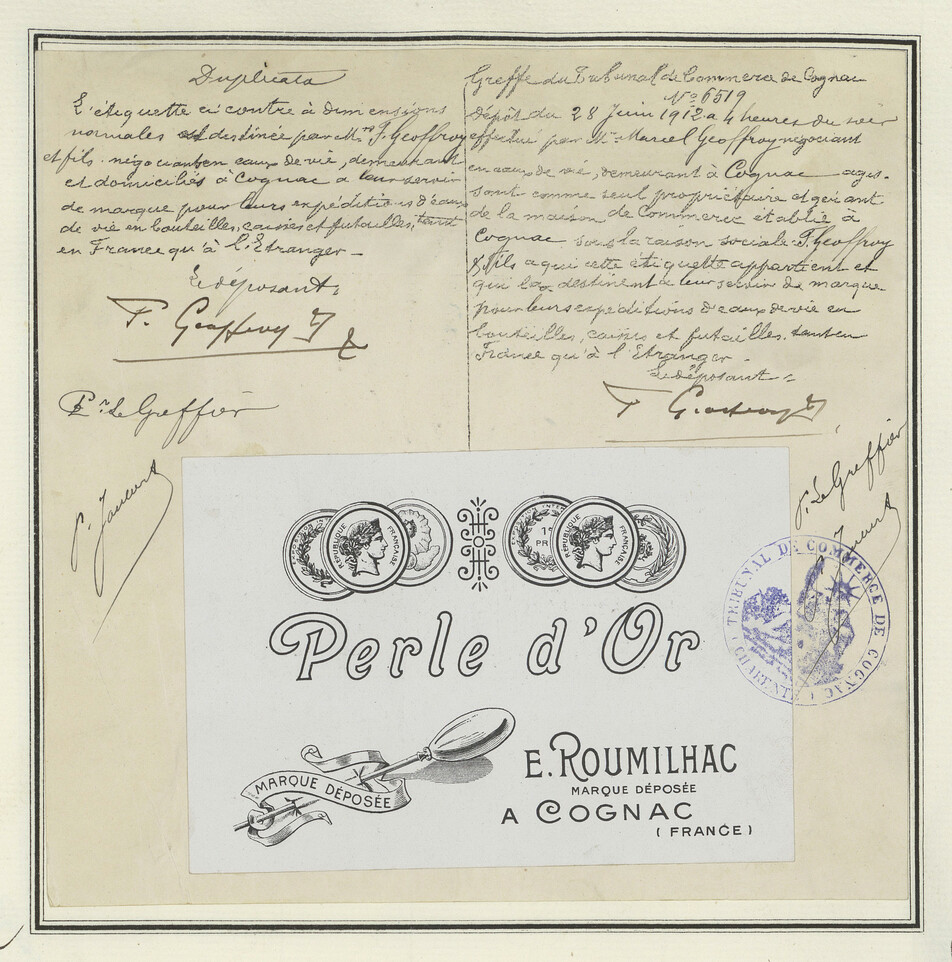 Duplicata
L'étiquette ci contre à dimensions
normales est destinée par Mrs F. Geoffroy
et fils négociants en eaux de vie, demeurant
et domiciliés à Cognac a leur servir
de marque pour leurs expéditions d'eaux
de vie en bouteilles, caisses et futailles, tant
en France qu'à l'Etranger
Le déposant,
F. Geoffroy
Pr Le Greffier
Greffe du Tribunal de Commerce de Cognac
No 6519
Dépôt du 28 Juin 1912 a 4 heures du soir
effectué par Mr Marcel Geoffroy négociant
en eaux de vié, demeurant à Cognac agis-
sant comme seul propriétaire et gérant
de la maison de Commerce établie à
Cognac sous la raison sociale F. Geoffroy
& fils a qui cette étiquette appartient et
qui la destinent a leur servir de marque
pour leurs expéditions d'eaux de vie en
bouteilles, caisses et futailles. tant en
France qu'à l'Etranger
Le déposant
F Geoffroy
P. Le Greffier
RÉPUBLIQUE FRANÇAISE
1er
PR
RÉPUBLIQUE FRANÇAISE
Perle d'Or
MARQUE DÉPOSÉE
E. ROUMILHAC
MARQUE DÉPOSÉE
A COGNAC
(FRANCE)
TRIBUNAL DE COMMERCE DE COGNAC
(CHARENTE)